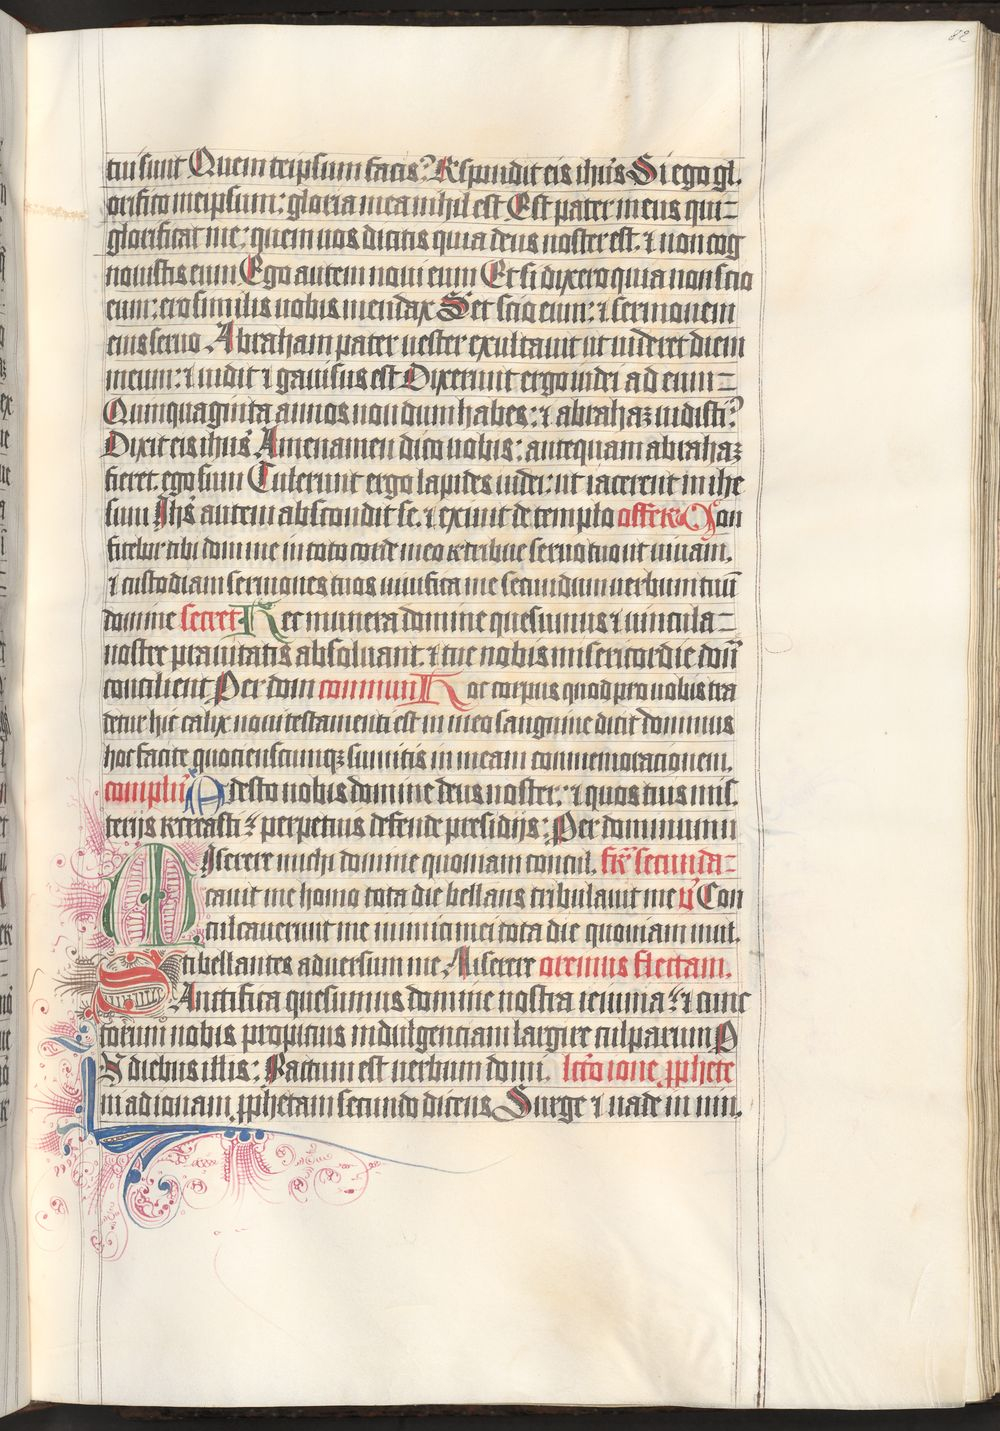 82
tui sunt Quem teipsum facis? Rspondit eis ihus Si ego gl.
orifico meipsum: gloria mea nihil est Est pater meus qui
glorificat me: quem uos dicitis quia deus noster est. ⁊ non cog
nouistis eum Ego autem noui eum Et si dixero quia non scio
eum: ero similis uobis mendax Set scio eum: ⁊ sermonem
eius seruo Abraham pater uester exultauit ut uideret diem
meum: ⁊ uidit ⁊ gauisus est Dixerunt ergo iudei ad eum
Quinquaginta annos non dum habes: ⁊ abrahaꝫ uidisti?
Dixit eis ihus Amen amen dico uobis: antequam abrahaꝫ
fieret. ego sum Tulerunt ergo lapides iudei: ut iacerent in ihe
sum Ihs autem abscondit se. ⁊ exiuit de templo offerᷓ Con
fitebor tibi domine in toto corde meo retribue seruo tuo ut uiuam.
⁊ custodiam sermones tuos uiuifica me secundum uerbum tuū
domine secret Hec munera domine quesumus ⁊ uincula
nostre prauitatis absoluant. ⁊ tue nobis misericordie donā
concilient Per dom commun Hoc corpus quod pro uobis tra
detur hic calix noui testamenti est in meo sanguine dicit dominus
hoc facite quocienscumqꝫ sumitis in meam commemoracionem.
complēn Adesto nobis domine deus noster: ⁊ quos tuis mis.
terijs recreasti ⁊ perpetuis defende presidijs: Per dominum
Miserere michi domine quoniam concul. fr̄ secunda
cauit me homo tota die bellans tribulauit me v̄ Con
culcauerunt me inimici mei tota die quoniam mul.
ti bellantes aduersum me. Miserere oremus flectam.
Sanctifica quesumus domine nostra ieiunia: ⁊ cunc
torum nobis propicius indulgenciam largire culparum P
In diebus illis: Factum est uerbum domi. lcō ione ꝓphete
ni ad ionam ꝓphetam secundo dicens Surge ⁊ uade in nin.